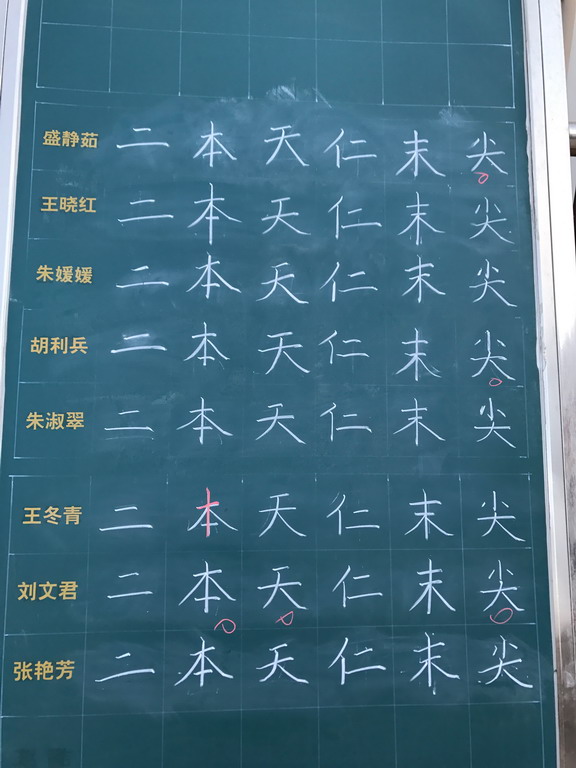 盛静茹 二 本 天 仁 末 尖
王晓红 二 本 天 仁 末 尖
朱媛媛 二 本 天 仁 末 尖
胡利兵 二 本 天 仁 末 尖
朱淑翠 二 本 天 仁 末 尖
王冬青 二 本 天 仁 末 尖
刘文君 二 本 天 仁 末 尖
张艳芳 二 本 天 仁 末 尖